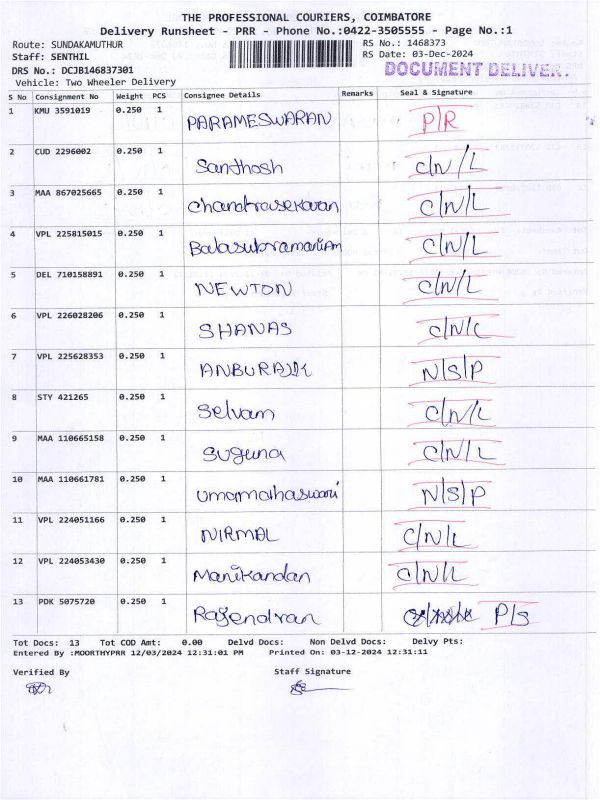 THE PROFESSIONAL COURIERS, COIMBATORE
Delivery Runsheet - PRR - Phone No.:0422-3505555 - Page No.:1
Route: SUNDAKAMUTHUR RS No.: 1468373
Staff: SENTHIL RS Date: 03-Dec-2024
DRS No.: DCJB146837301 DOCUMENT DELIVER.
Vehicle: Two Wheeler Delivery
S No Consignment No Weight PCS Consignee Details Remarks Seal & Signature
1 KMU 3591019 0.250 1 PARAMESWARAN P/R
2 CUD 2296002 0.250 1 Santhosh C/N/L
3 MAA 867025665 0.250 1 Chandrasekaran C/N/L
4 VPL 225815015 0.250 1 Balasubramaniam C/N/L
5 DEL 710158891 0.250 1 NEWTON C/N/L
6 VPL 226028206 0.250 1 SHANAS C/N/L
7 VPL 225628353 0.250 1 N/S/P
8 STY 421265 0.250 1 Selvam C/N/L
9 MAA 110665158 0.250 1 Suguna C/N/L
10 MAA 110661781 0.250 1 N/S/P
11 VPL 224051166 0.250 1 NIRMAL C/N/L
12 VPL 224053430 0.250 1 Manikandan C/N/L
13 PDK 5075720 0.250 1 Rajendran P/S
Tot Docs: 13 Tot COD Amt: 0.00 Delvd Docs: Non Delvd Docs: Delvy Pts:
Entered By :MOORTHYPRR 12/03/2024 12:31:01 PM Printed On: 03-12-2024 12:31:11
Verified By Staff Signature